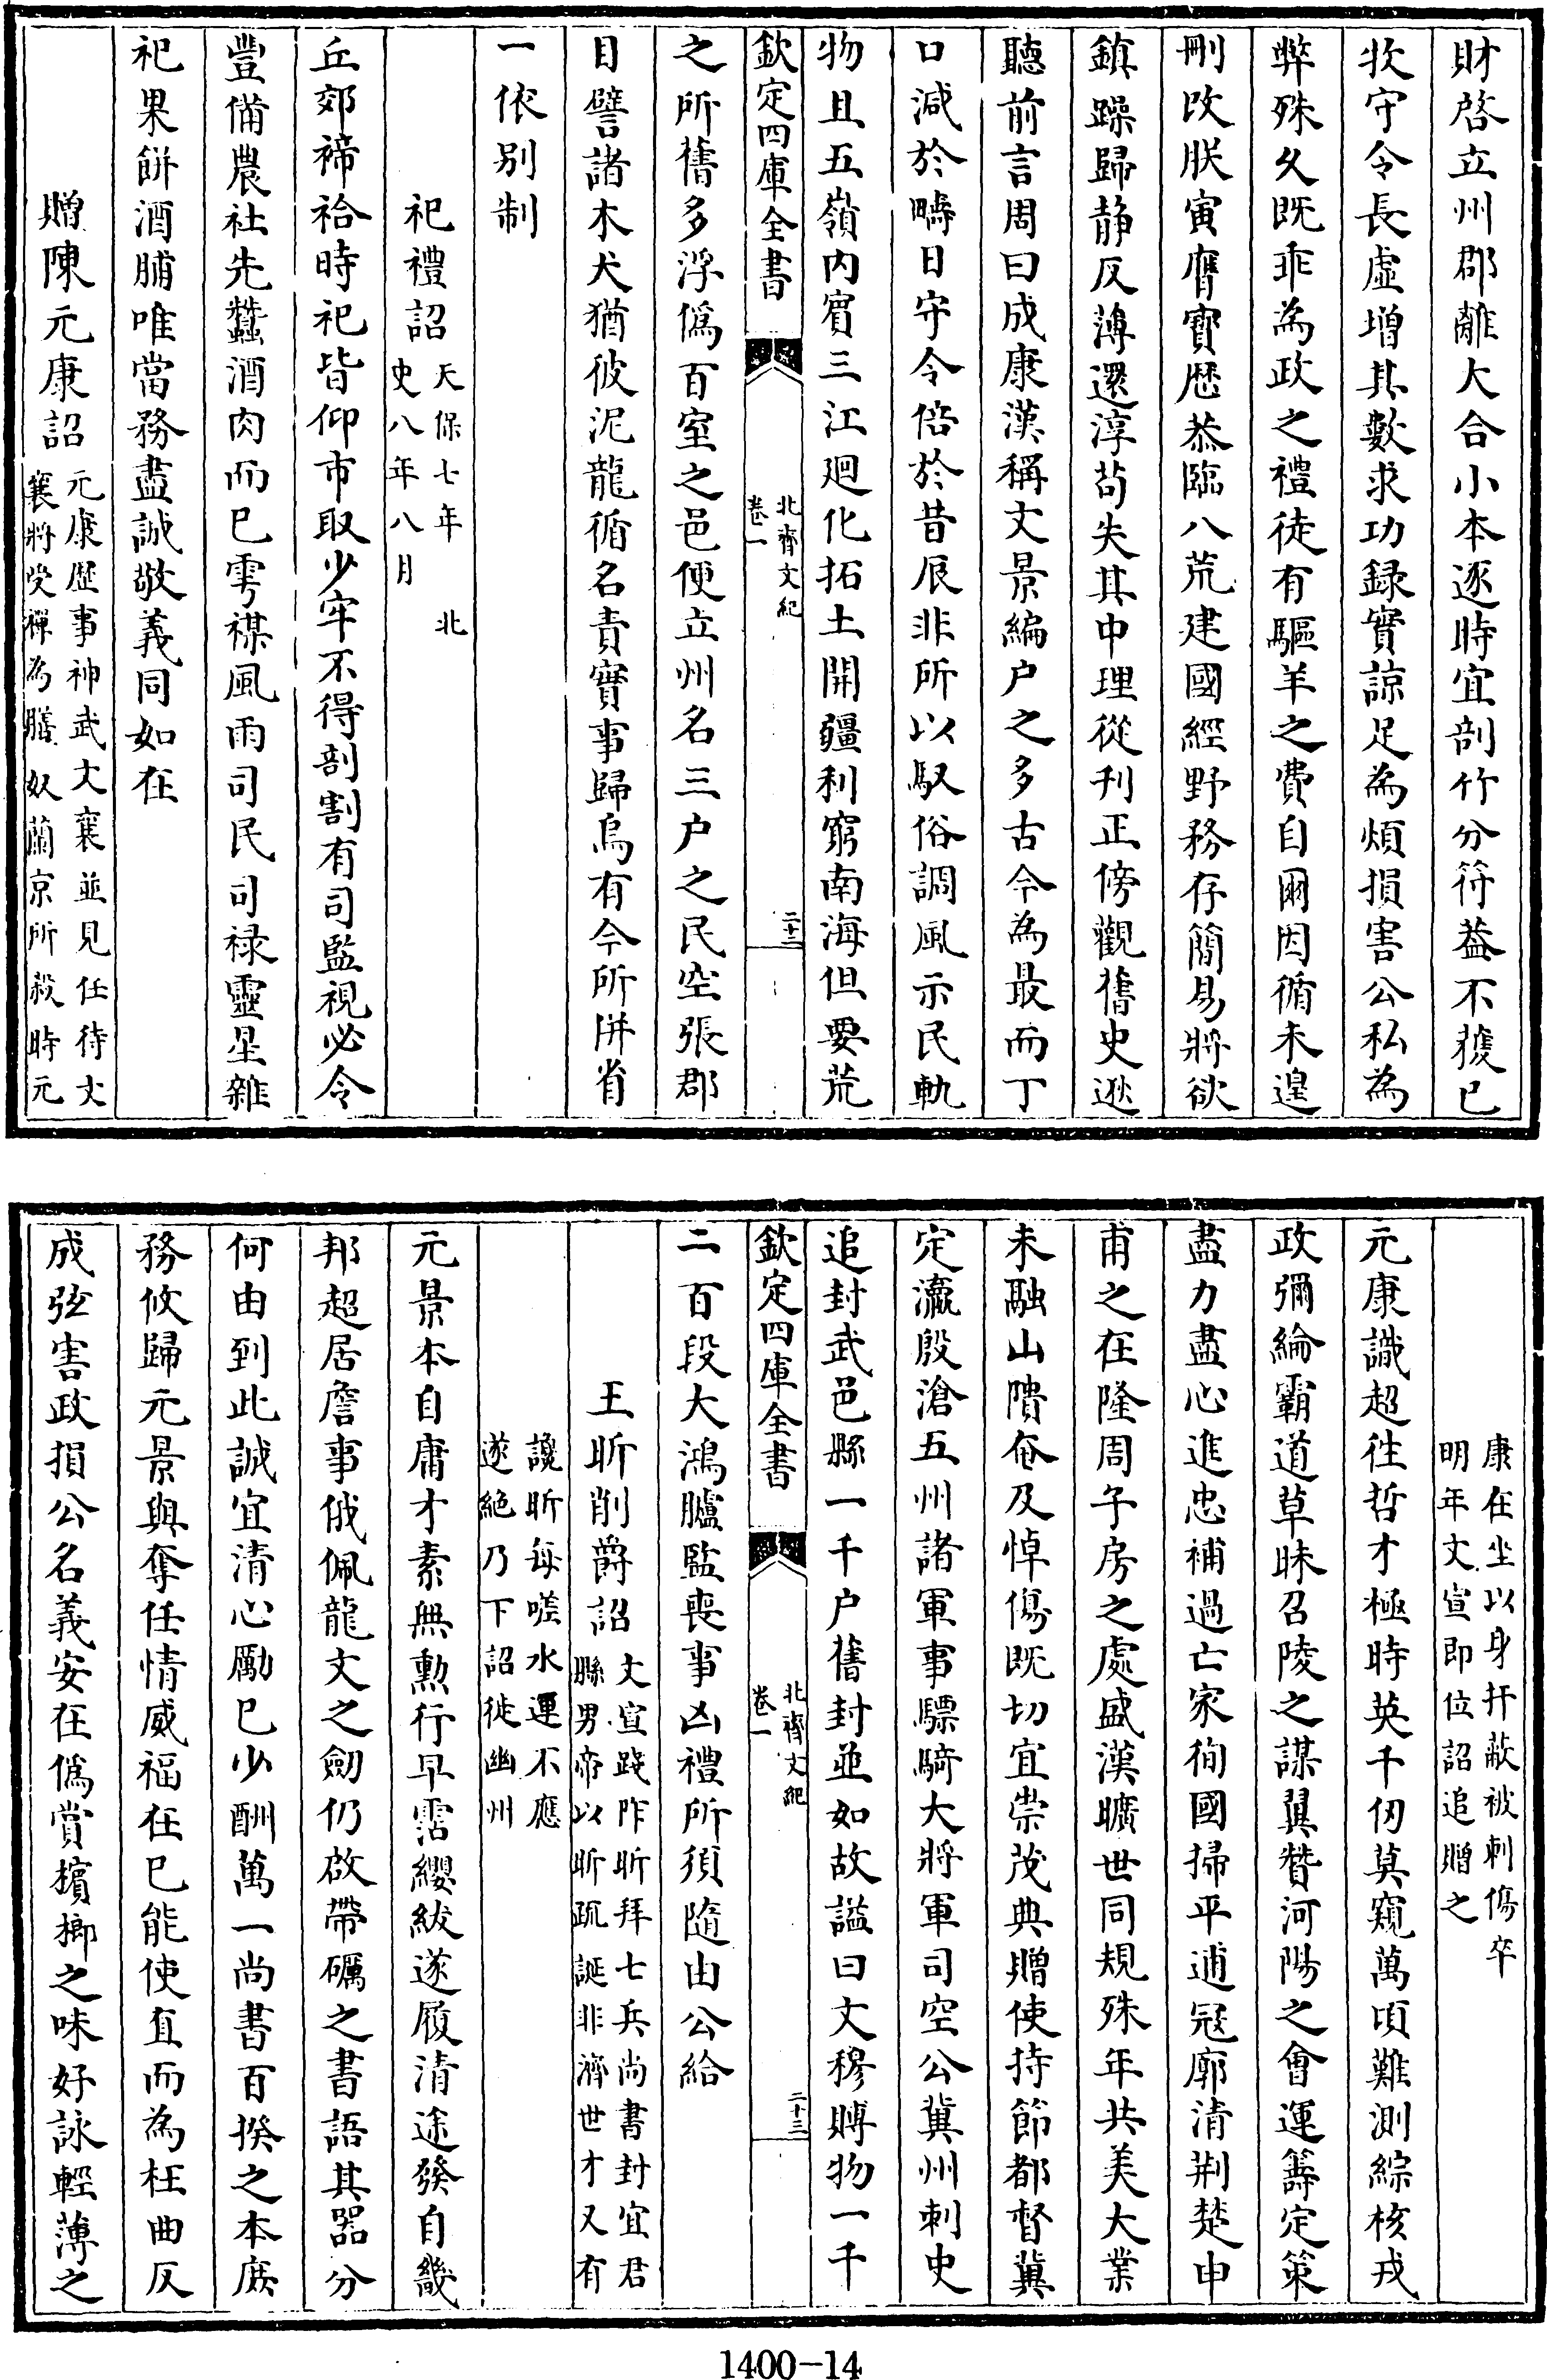 財啓立州郡離大合小本逐時宜剖竹分符葢不獲已
牧守令長虛增其數求功錄實諒足為煩損害公私為
弊殊久既乖為政之禮徒有驅羊之費自爾因循未遑
刪改朕寅膺寳歴恭臨八荒建國經野務存簡易將欲
鎮躁歸静反薄還淳苟失其中理從刋正傍觀舊史逖
聽前言周曰成康漢稱文景編户之多古今為最而丁
口減於疇日守令倍於昔辰非所以馭俗調風示民軌
物且五嶺内賓三江廻化拓土開疆利窮南海但要荒
欽定四庫全書
北齊文紀
卷一
二十二
之所舊多浮偽百室之邑便立州名三户之民空張郡
目譬諸木犬猶彼泥龍循名責實事歸烏有今所併省
一依别制
祀禮詔
天保七年 北
史八年八月
丘郊禘祫時祀皆仰市取少牢不得剖割有司監視必令
豐備農社先蠶酒肉而已雩禖風雨司民司禄靈星雜
祀果餅酒脯唯當務盡誠敬義同如在
贈陳元康詔
元康歴事神武文襄並見任待文
襄將受禪為膳奴蘭京所殺時元
康在坐以身扞蔽被刺傷卒
明年文宣即位詔追贈之
元康識超往哲才極時英千仞莫窺萬頃難測綜核戎
政彌綸霸道草昧召陵之謀翼贊河陽之會運籌定策
盡力盡心進忠補過亡家徇國掃平逋冦廓清荆楚申
甫之在隆周子房之處盛漢曠世同規殊年共美大業
未融山隤奄及悼傷既切宜崇茂典贈使持節都督冀
定瀛殷滄五州諸軍事驃騎大將軍司空公冀州刺史
追封武邑縣一千户舊封並如故諡曰文穆賻物一千
欽定四庫全書
北齊文紀
卷一
二十三
二百段大鴻臚監喪事凶禮所須隨由公給
王昕削爵詔
文宣踐阼昕拜七兵尚書封宜君
縣男帝以昕疏誕非濟世才又有
讒昕每嗟水運不應
遂絶乃下詔徙幽州
元景本自庸才素無勲行早霑纓紱遂履清途發自畿
邦超居詹事俄佩龍文之劒仍啟帶礪之書語其器分
何由到此誠宜清心勵已少酬萬一尚書百揆之本庶
務攸歸元景與奪任情威福在已能使直而為枉曲反
成弦害政損公名義安在偽賞檳榔之味好詠輕薄之
1400-14